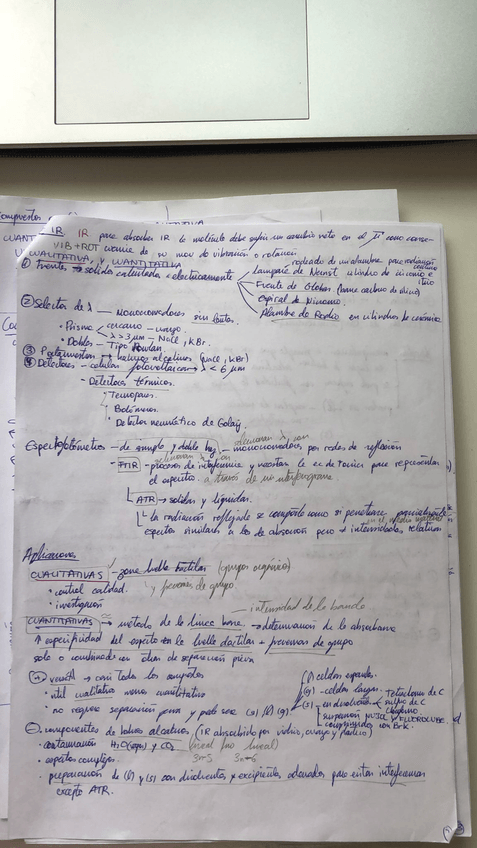 IR IR para absorber IR la molécula debe sufrir un cambio neto en el μ como conse-
VIB+ROT cuencia de su mov de vibración o rotación.
CUALITATIVA, y CUANTITATIVA
rodeado de un alambre para
① Fuentes → sólidos calentados eléctricamente
Lámpara de Nernst cilindro de circonio e itrio
Fuente de Globar (barra carburo de silicio)
Espiral de Nicromo.
Alambre de Rodio en cilindros de cerámica
② Selector de λ — Monocromadores sin
• Prisma cercano - cuarzo.
λ > 3 μm - NaCl, KBr.
• Dobles - Tipo
③ haluros alcalinos (NaCl, KBr)
④ Detectores - células fotovoltaicas → λ < 6 μm
- Detectores térmicos.
• Termopares
• Bolómeros.
• Detector neumático de Golay
Espectrofotómetros - de simple y doble haz - monocromadores por redes de reflexión
FTIR - procesos de interferencia y necesitan la ec de Fourier para representar
el espectro. a través de un interferograma
ATR → sólidos y líquidos.
la radiación reflejada se comporta como si penetrase parcialmente
en el medio
espectros similares a los de absorción pero ≠ intensidades relativas
Aplicaciones
CUALITATIVAS - zona huella dactilar (grupos orgánicos)
• control calidad. y posiciones de grupo.
• investigación
intensidad de la banda
CUANTITATIVAS - método de la línea base. → determinación de la absorbancia
↑ especificidad del espectro en la huella dactilar + posiciones de grupo
solo o combinados con técn de separación previa
(+) versátil → casi todos los compuestos
• útil cualitativa menos cuantitativa
• no requiere separación previa y puede ser (s) (l) (g)
(l) celdas
(g) - celdas largas.
(s) en disolución Tetracloruro de C
sulfuro de C
Cloroformo
suspensión NUJOL y FLUOROLUBE
comprimidos con BrK.
(-) componentes de haluros alcalinos (IR absorbido por vidrio, cuarzo y plástico)
• contaminación H₂O (vapor) y CO₂ lineal / no lineal
• espectros complejos. 3n-5 3n-6
• preparación de (l) y (s) con disolventes y excipientes adecuados para evitar interferencias
excepto ATR.